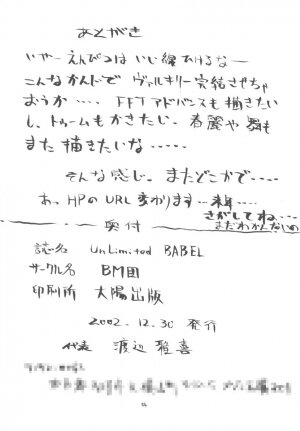 あとがき
いやーえんぴつはいい線ひけるなー
こんなかんじで ヴァルキリー完結させちゃ
おうか‥‥ FFTアドバンスも描きたい
し、トゥームもかきたい。春麗や
また描きたいな‥‥‥
そんな感じ。またどこかで‥‥‥
あっ HPのURL変わります…
さがしてね…
まだわかんないの
奥付
誌名 UnLimited BABEL
サークル名 BM団
印刷所 大陽出版
2002.12.30 発行
代表 渡辺 雅喜